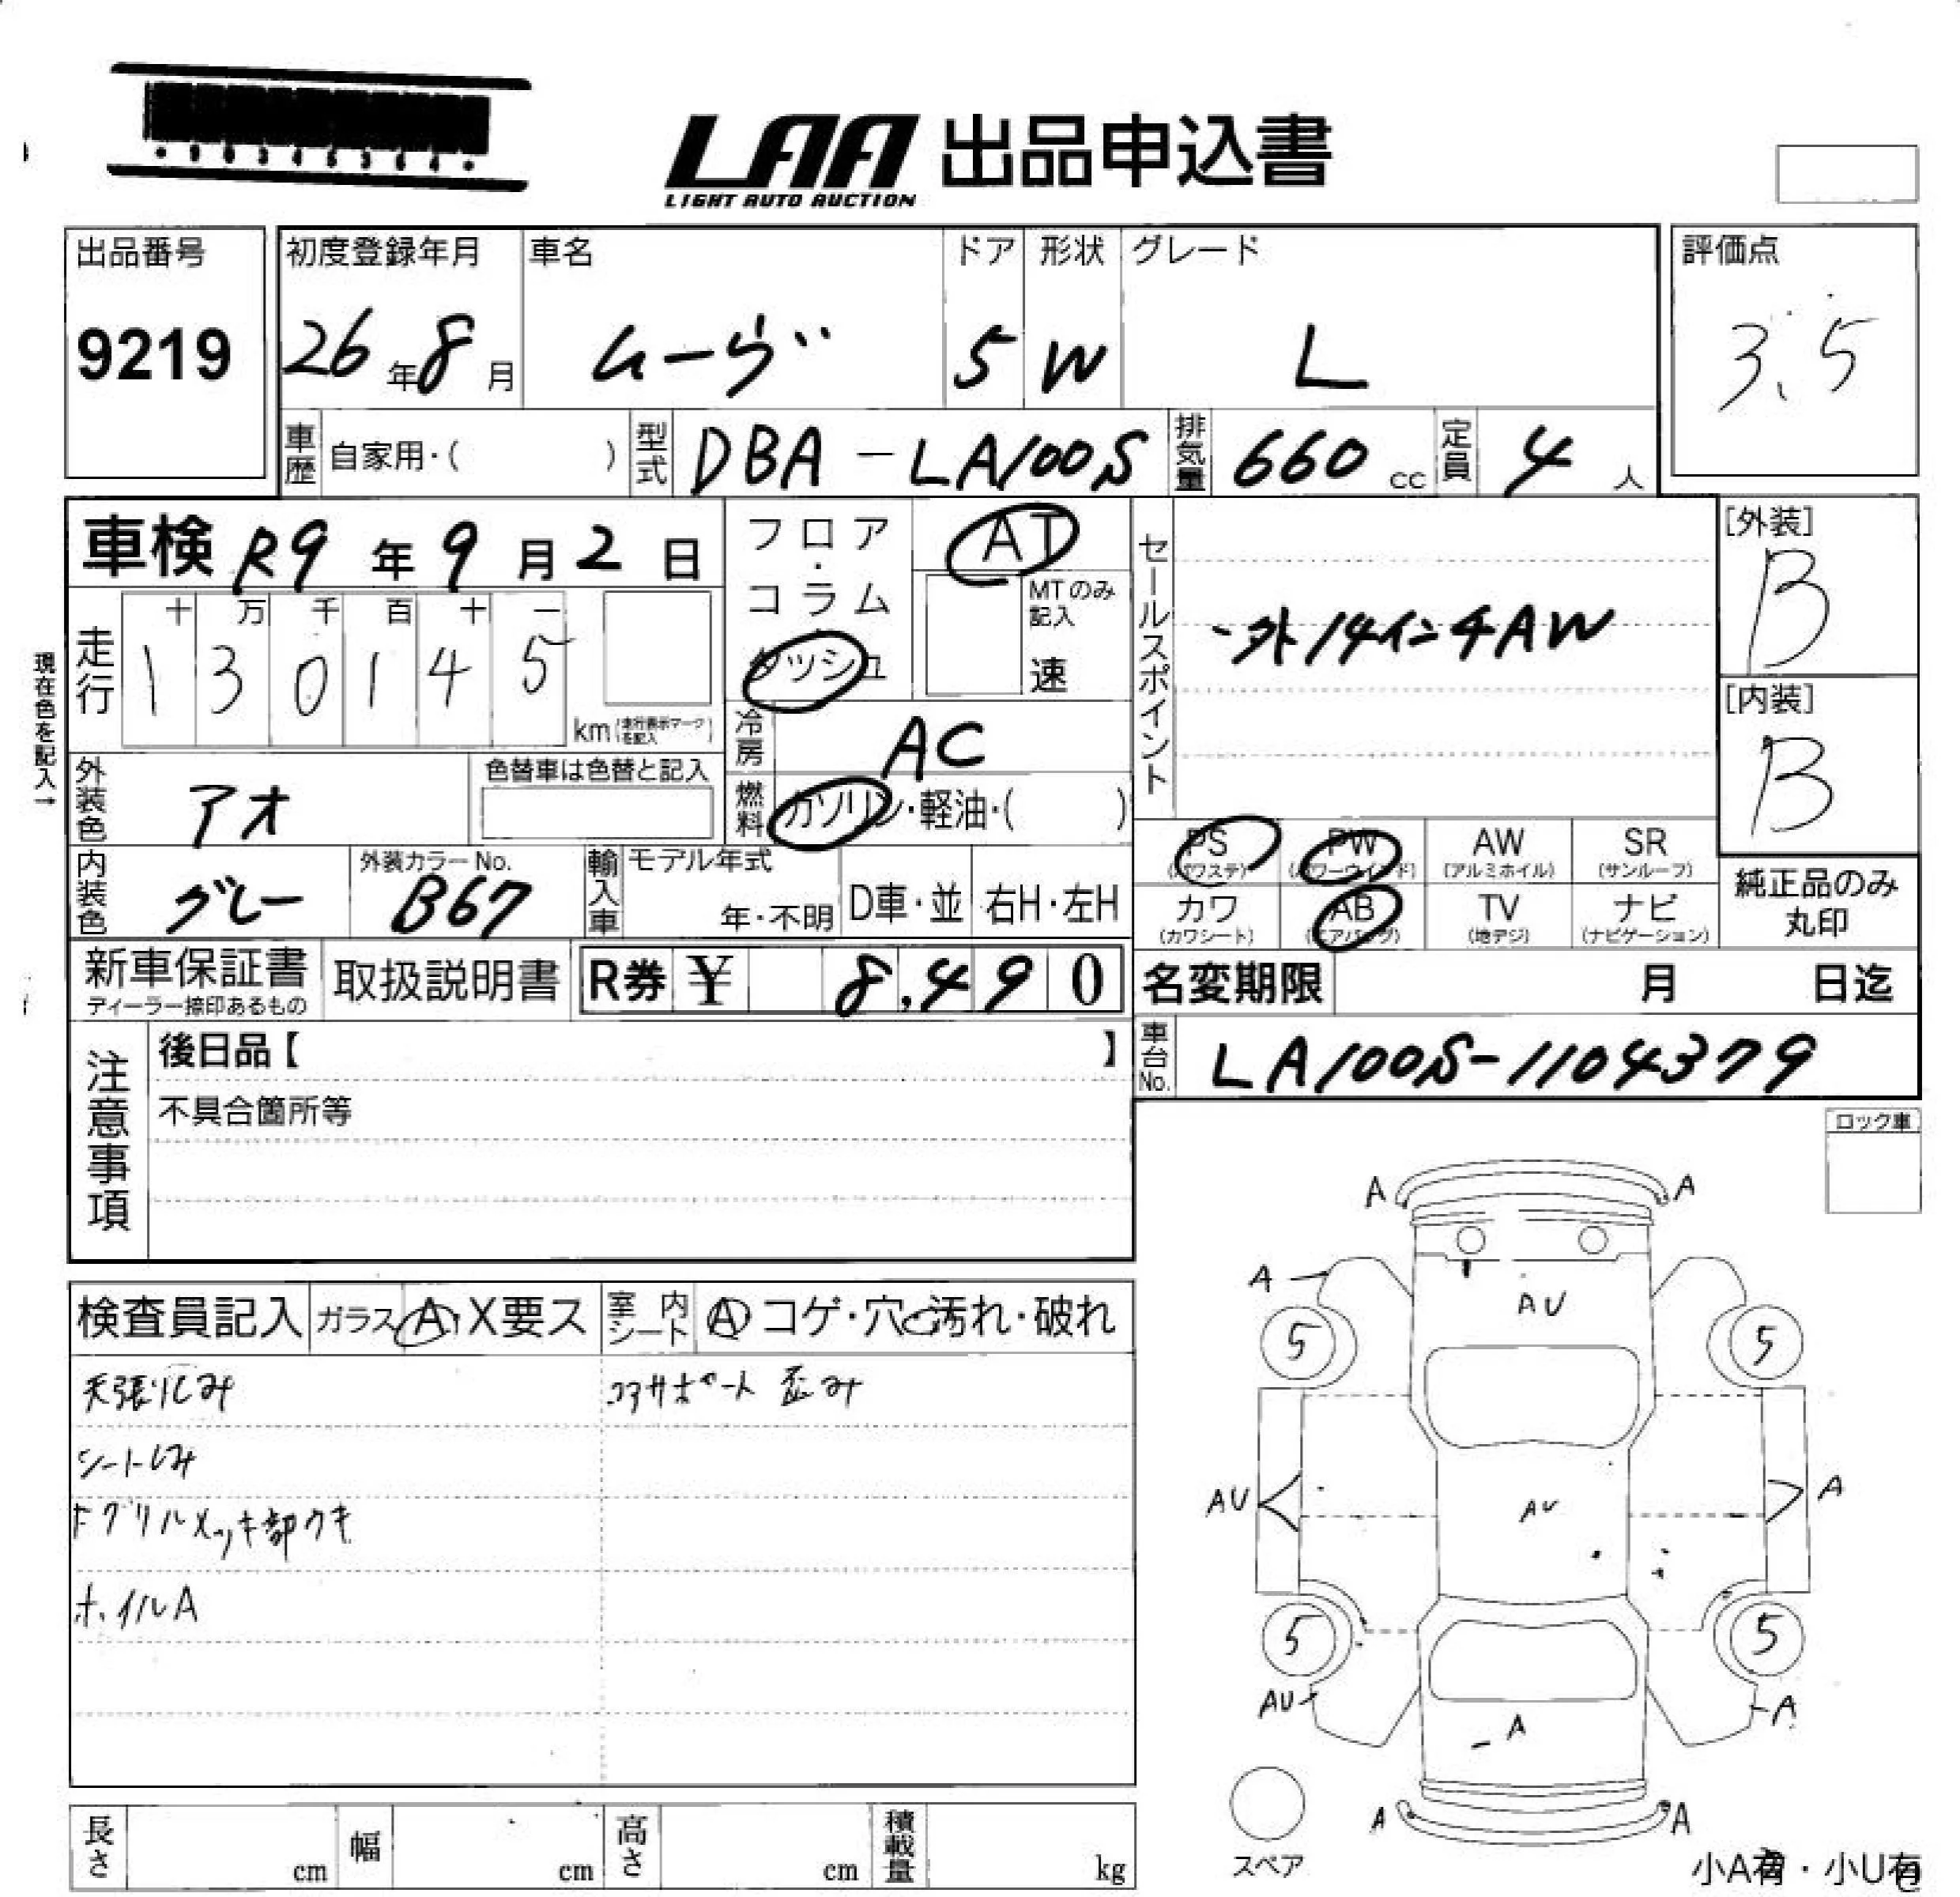 LAA 出品申込書
LIGHT AUTO AUCTION
出品番号
9219
初度登録年月
26年8月
車名
ムーヴ
ドア
5
形状
W
グレード
L
評価点
3.5
車歴 自家用・( )
型式 DBA-LA100S
排気量 660 cc
定員 4 人
車検 R9年9月2日
現在色を記入→
走行
十 万 千 百 十 一
1 3 0 1 4 5
km (走行表示マークを記入)
フロア・コラム
ダッシュ
AT
MTのみ記入
速
冷房 AC
燃料 ガソリン・軽油・( )
セールスポイント
・外14インチAW
[外装]
B
[内装]
B
外装色 アオ
色替車は色替と記入
内装色 グレー
外装カラーNo.
B67
輸入車
モデル年式
年・不明
D車・並
右H・左H
PS
(パワステ)
PW
(パワーウインド)
AW
(アルミホイル)
SR
(サンルーフ)
カワ
(カワシート)
AB
(エアバッグ)
TV
(地デジ)
ナビ
(ナビゲーション)
純正品のみ
丸印
新車保証書
ディーラー捺印あるもの
取扱説明書
R券 ¥ 8,490
名変期限 月 日迄
車台No. LA100S-1104379
注意事項
後日品【 】
不具合箇所等
ロック車
検査員記入
ガラス A・X要ス
室内シート A コゲ・穴・汚れ・破れ
天張りしみ
コアサポート 歪み
シートしみ
Fグリルメッキ部ウキ
ホイルA
A A
A
AU
5 5
AU
AU
A
5 5
AU
A
A
A A
スペア
長さ cm
幅 cm
高さ cm
積載量 kg
小A有・小U有